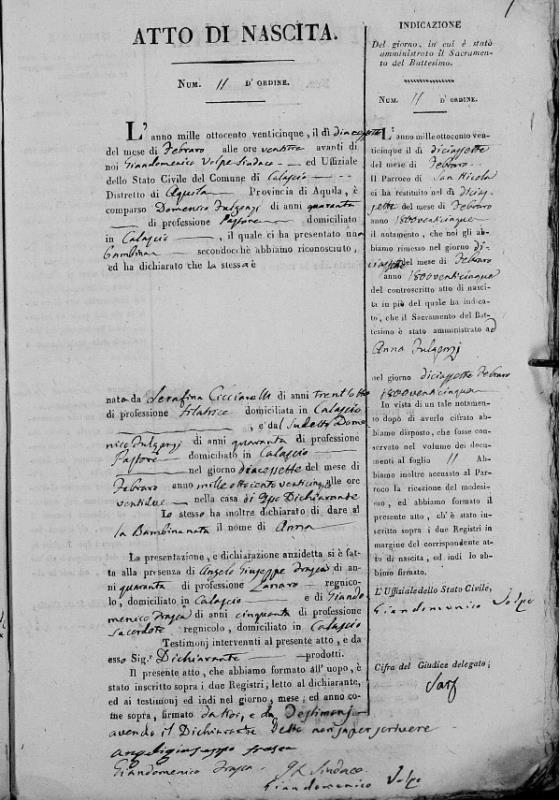 ATTO DI NASCITA.
NUM. 11 D'ORDINE.
L'anno mille ottocento venticinque, il dì diacessette
del mese di Febraro alle ore ventitre avanti di
noi Giandomenico Volpe Sindaco ed Uffiziale
dello Stato Civile del Comune di Calascio
Distretto di Aquila Provincia di Aquila, è
comparso Domenico Fulgenzj di anni quaranta
di professione Pastore domiciliato
in Calascio, il quale ci ha presentato una
Bambina secondocchè abbiamo riconosciuto,
ed ha dichiarato che la stessa è
nata da Serafina Cicciarelli di anni trent'otto
di professione filatrice domiciliata in Calascio
, e dal sudetto Dome
nico Fulgenzj di anni quaranta di professione
Pastore domiciliato in Calascio
nel giorno diacessette del mese di
Febraro anno mille ottocento venticinq; alle ore
ventidue nella casa di Esso Dichiarante
Lo stesso ha inoltre dichiarato di dare al
la Bambina nata il nome di Anna
La presentazione, e dichiarazione anzidetta si è fat-
ta alla presenza di Angelo Giuseppe Frasca di an-
ni quaranta di professione Lanaro regnico-
lo, domiciliato in Calascio e di Giando
menico Frasca di anni cinquanta di professione
Sacerdote regnicolo, domiciliato in Calascio
Testimonj intervenuti al presente atto, e da
esso Sig.r Dichiarante prodotti.
Il presente atto, che abbiamo formato all'uopo, è
stato inscritto sopra i due Registri, letto al dichiarante,
ed ai testimonj ed indi nel giorno, mese, ed anno co-
me sopra, firmato da Noi, e da Testimonj
avendo il Dichiarante detto non saper scrivere
Angelgiuseppo Frasca
Giandomenico Frasca Il Sindaco
Giandomenico Volpe
INDICAZIONE
Del giorno, in cui è stato
amministrato il Sacramen-
to del Battesimo.
NUM. 11 D'ORDINE.
L'anno mille ottocento ven-
ticinque il dì diciassette
del mese di Febraro
Il Parroco di San Nicola
ci ha restituito nel dì dicias
sette del mese di Febraro
anno 1800venticinque
il notamento, che noi gli ab-
biamo rimesso nel giorno di-
ciassette del mese di Febraro
anno 1800venticinque
del controscritto atto di nasci-
ta in piè del quale ha indica-
to, che il Sacramento del Bat-
tesimo è stato amministrato ad
Anna Fulgenzj
nel giorno diciassette Febraro
1800venticinque
In vista di un tale notamento
dopo di averlo cifrato ab-
biamo disposto, che fosse con-
servato nel volume dei docu-
menti al foglio 11 Ab-
biamo inoltre accusato al Par-
roco la ricezione del modesi-
mo, ed abbiamo formato il
presente atto, ch'è stato in-
scritto sopra i due Registri in
margine del corrispondente at-
to di nascita, ed indi lo ab-
biamo firmato.
L'Uffiziale dello Stato Civile,
Giandomenico Volpe
Cifra del Giudice delegato;